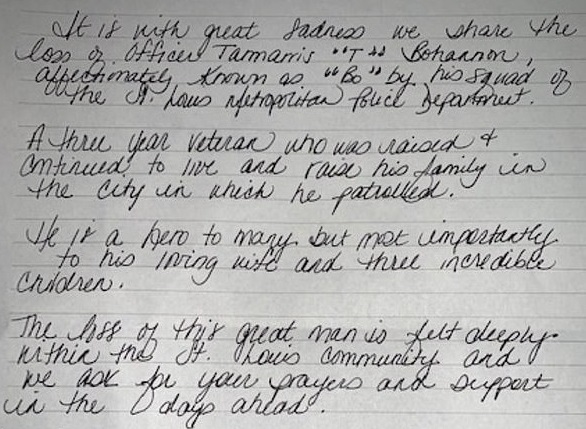 It is with great sadness we share the
loss of Officer Tamarris "T" Bohannon,
affectionately known as "Bo" by his squad of
the St. Louis Metropolitan Police Department.
A three year veteran who was raised &
continued to live and raise his family in
the city in which he patrolled.
He is a hero to many but most importantly
to his loving wife and three incredible
children.
The loss of this great man is felt deeply
within the St. Louis community and
we ask for your prayers and support
in the days ahead.